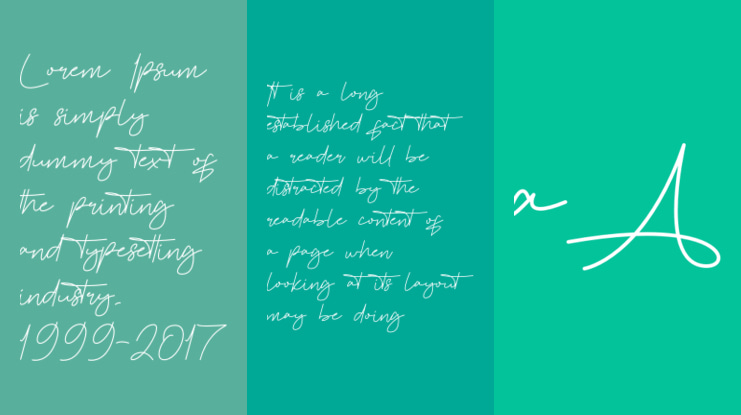 Lorem Ipsum
is simply
dummy text of
the printing
and typesetting
industry.
1999-2017
It is a long
established fact that
a reader will be
distracted by the
readable content of
a page when
looking at its layout
may be doing
a A